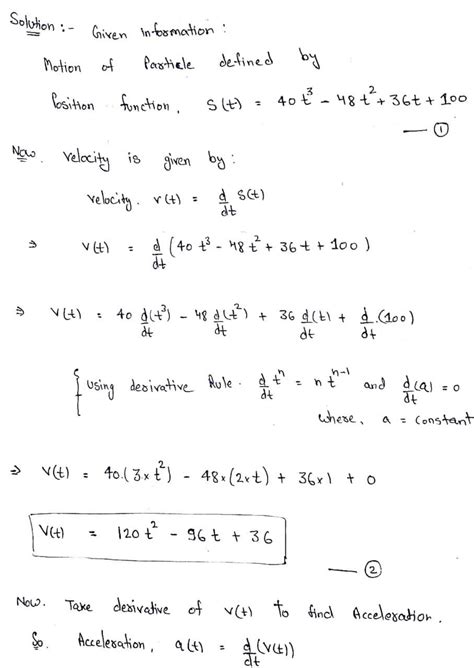 Solution :- Given information :
Motion of Particle defined by
Position function, S(t) = 40t³ - 48t² + 36t + 100
— ①
Now. velocity is given by :
velocity. v(t) = d/dt S(t)
⇒ v(t) = d/dt (40t³ - 48t² + 36t + 100)
⇒ v(t) = 40 d(t³)/dt - 48 d(t²)/dt + 36 d(t)/dt + d/dt.(100)
{ using derivative Rule. d/dt tⁿ = n tⁿ⁻¹ and d(a)/dt = 0
where, a = constant
⇒ v(t) = 40.(3×t²) - 48×(2×t) + 36×1 + 0
v(t) = 120t² - 96t + 36
— ②
Now. Take derivative of v(t) to find Acceleration.
So. Acceleration, a(t) = d/dt (v(t))